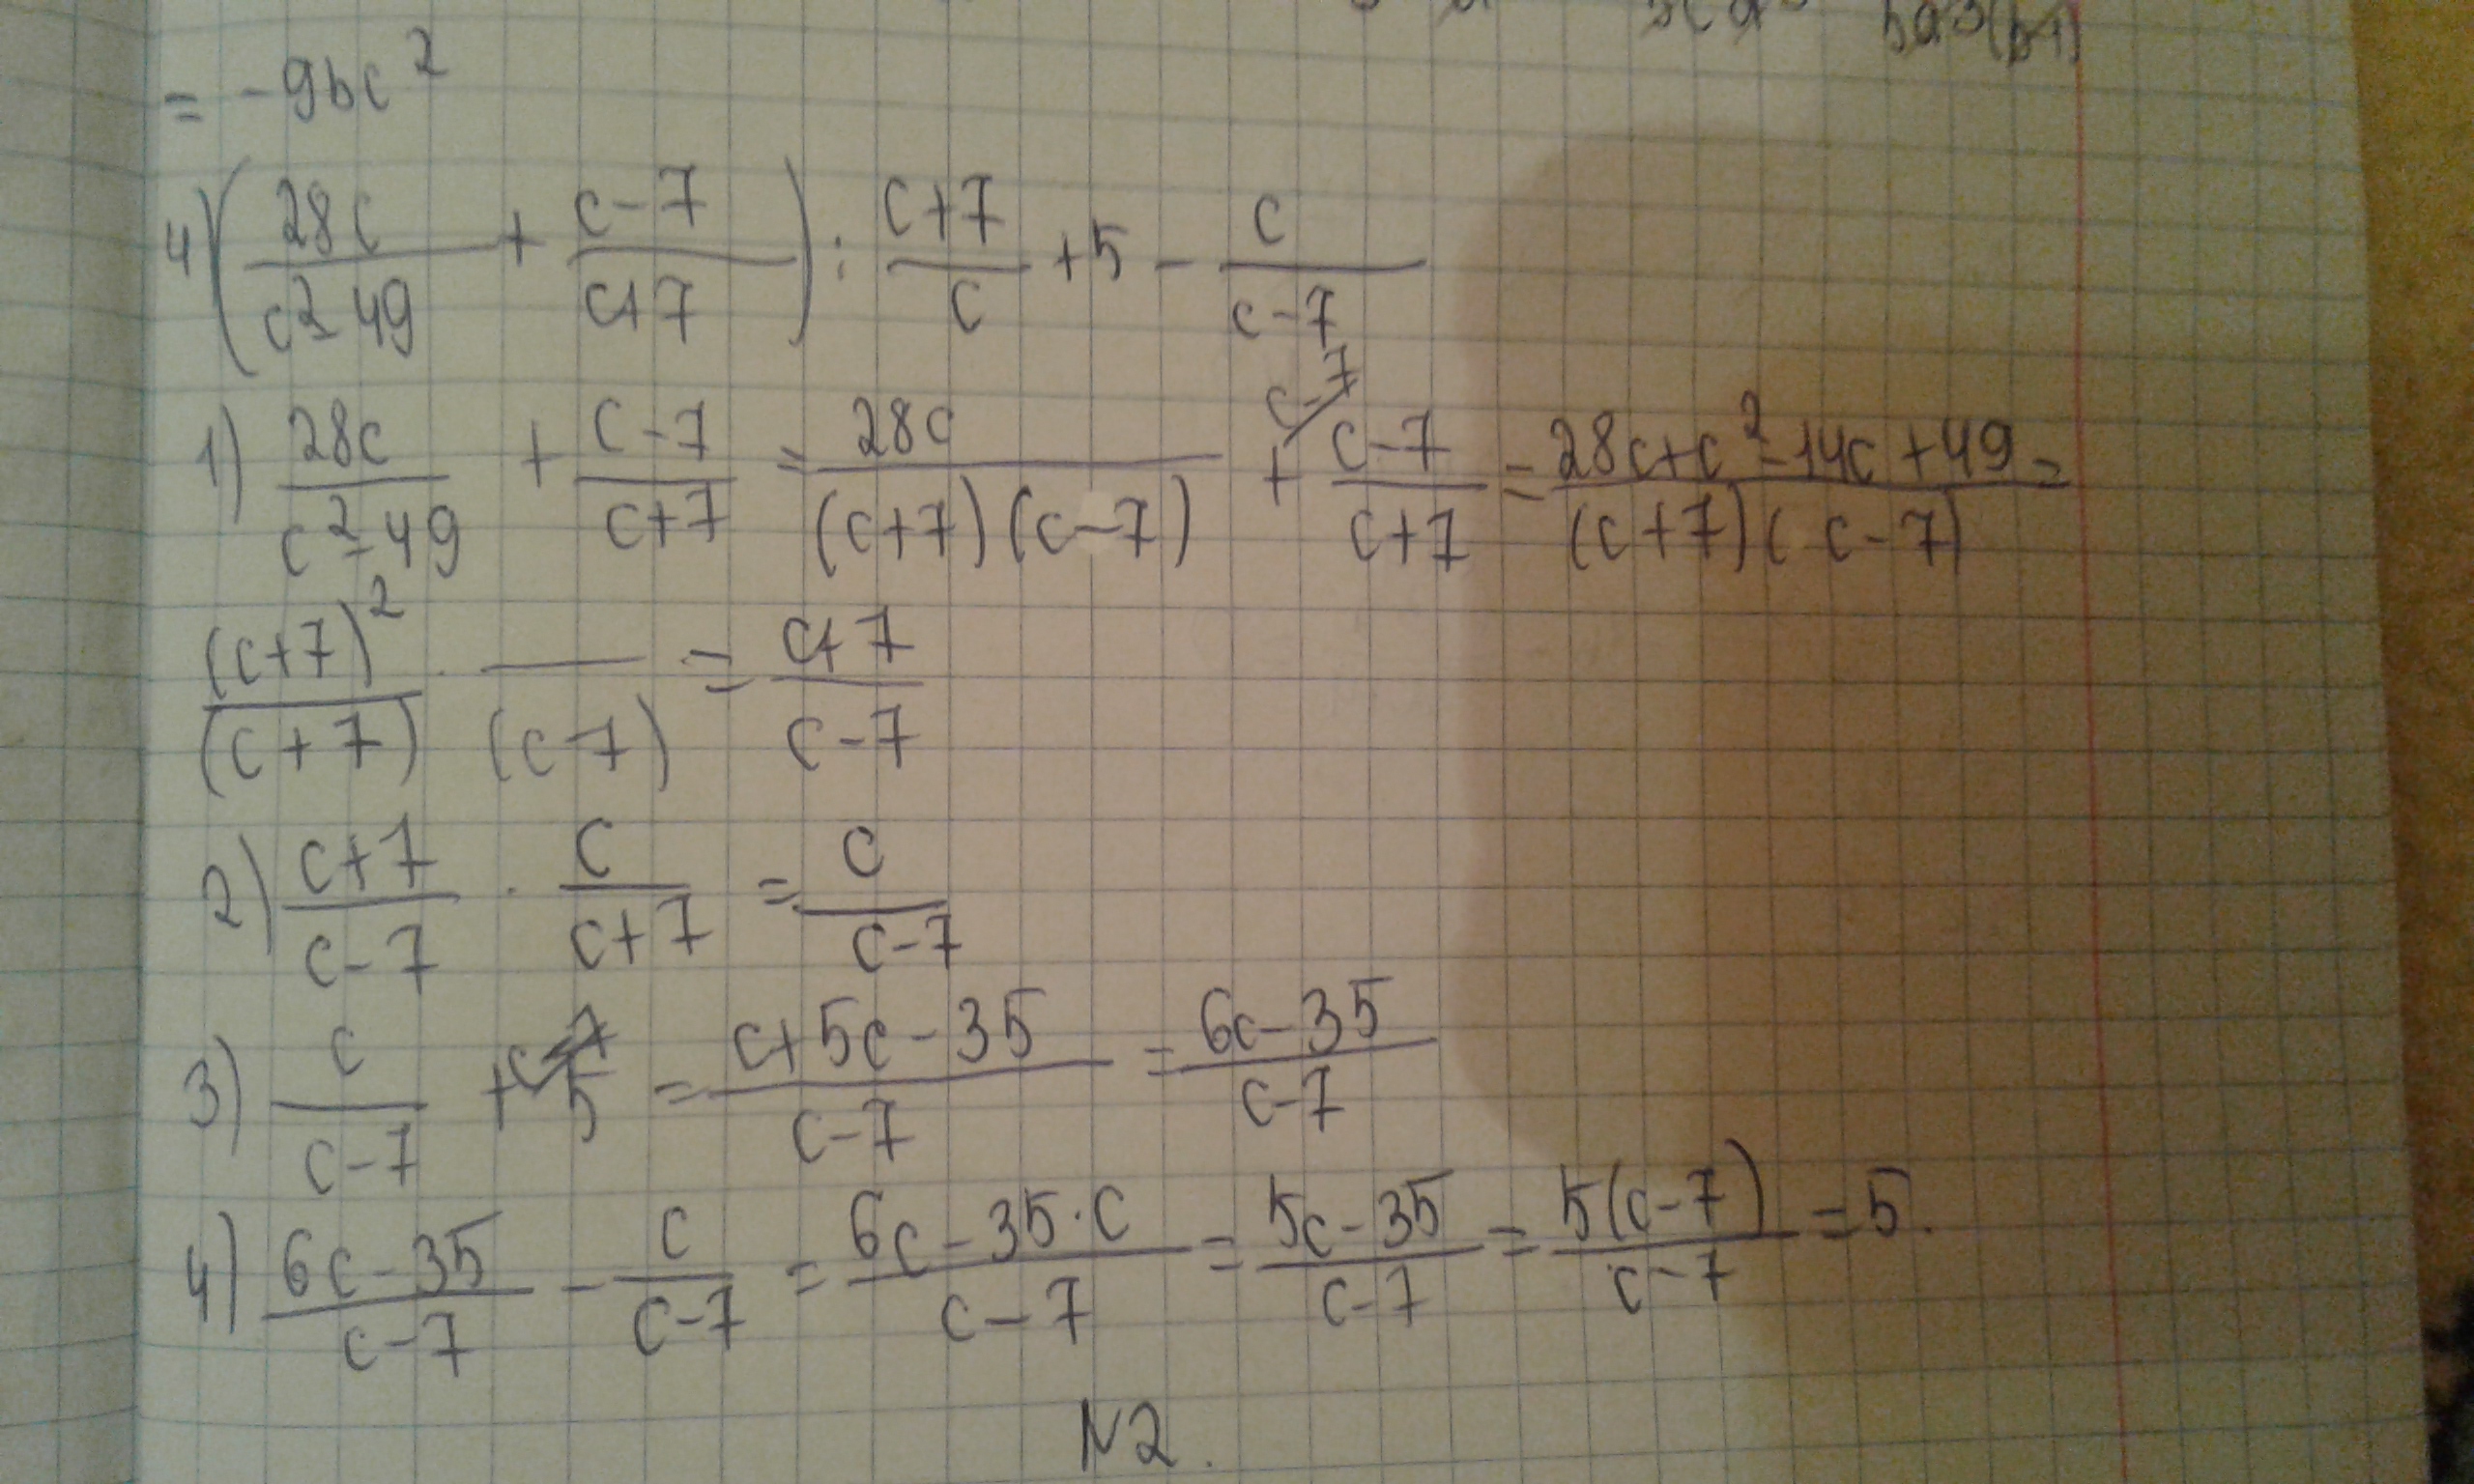 5a³(b-1)
= -9bc²
4) (28c/(c²-49) + (c-7)/(c+7)) : (c+7)/c + 5 - c/(c-7)
1) 28c/(c²-49) + (c-7)/(c+7) = 28c/((c+7)(c-7)) + (c-7)/(c+7) ^(c-7) = (28c+c²-14c+49)/((c+7)(c-7)) =
(c+7)²/(c+7) · —/(c-7) = (c+7)/(c-7)
2) (c+7)/(c-7) · c/(c+7) = c/(c-7)
3) c/(c-7) + 5 ^(c-7) = (c+5c-35)/(c-7) = (6c-35)/(c-7)
4) (6c-35)/(c-7) - c/(c-7) = (6c-35·c)/(c-7) = (5c-35)/(c-7) = 5(c-7)/(c-7) = 5.
N2.